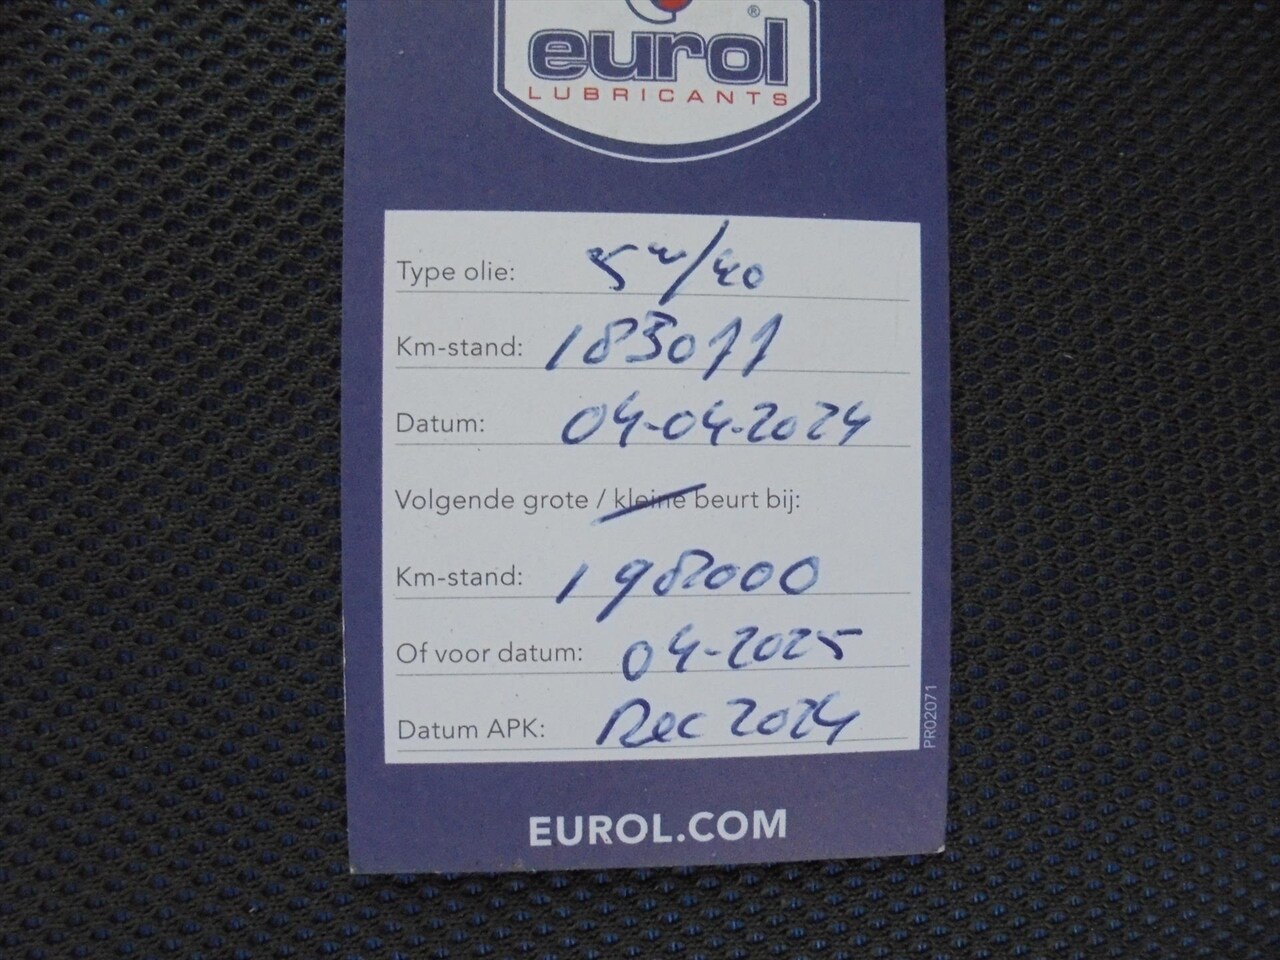 eurol ®
LUBRICANTS
Type olie: 5w/40
Km-stand: 183011
Datum: 04-04-2024
Volgende grote / kleine beurt bij:
Km-stand: 198000
Of voor datum: 04-2025
Datum APK: Dec 2024
PR02071
EUROL.COM